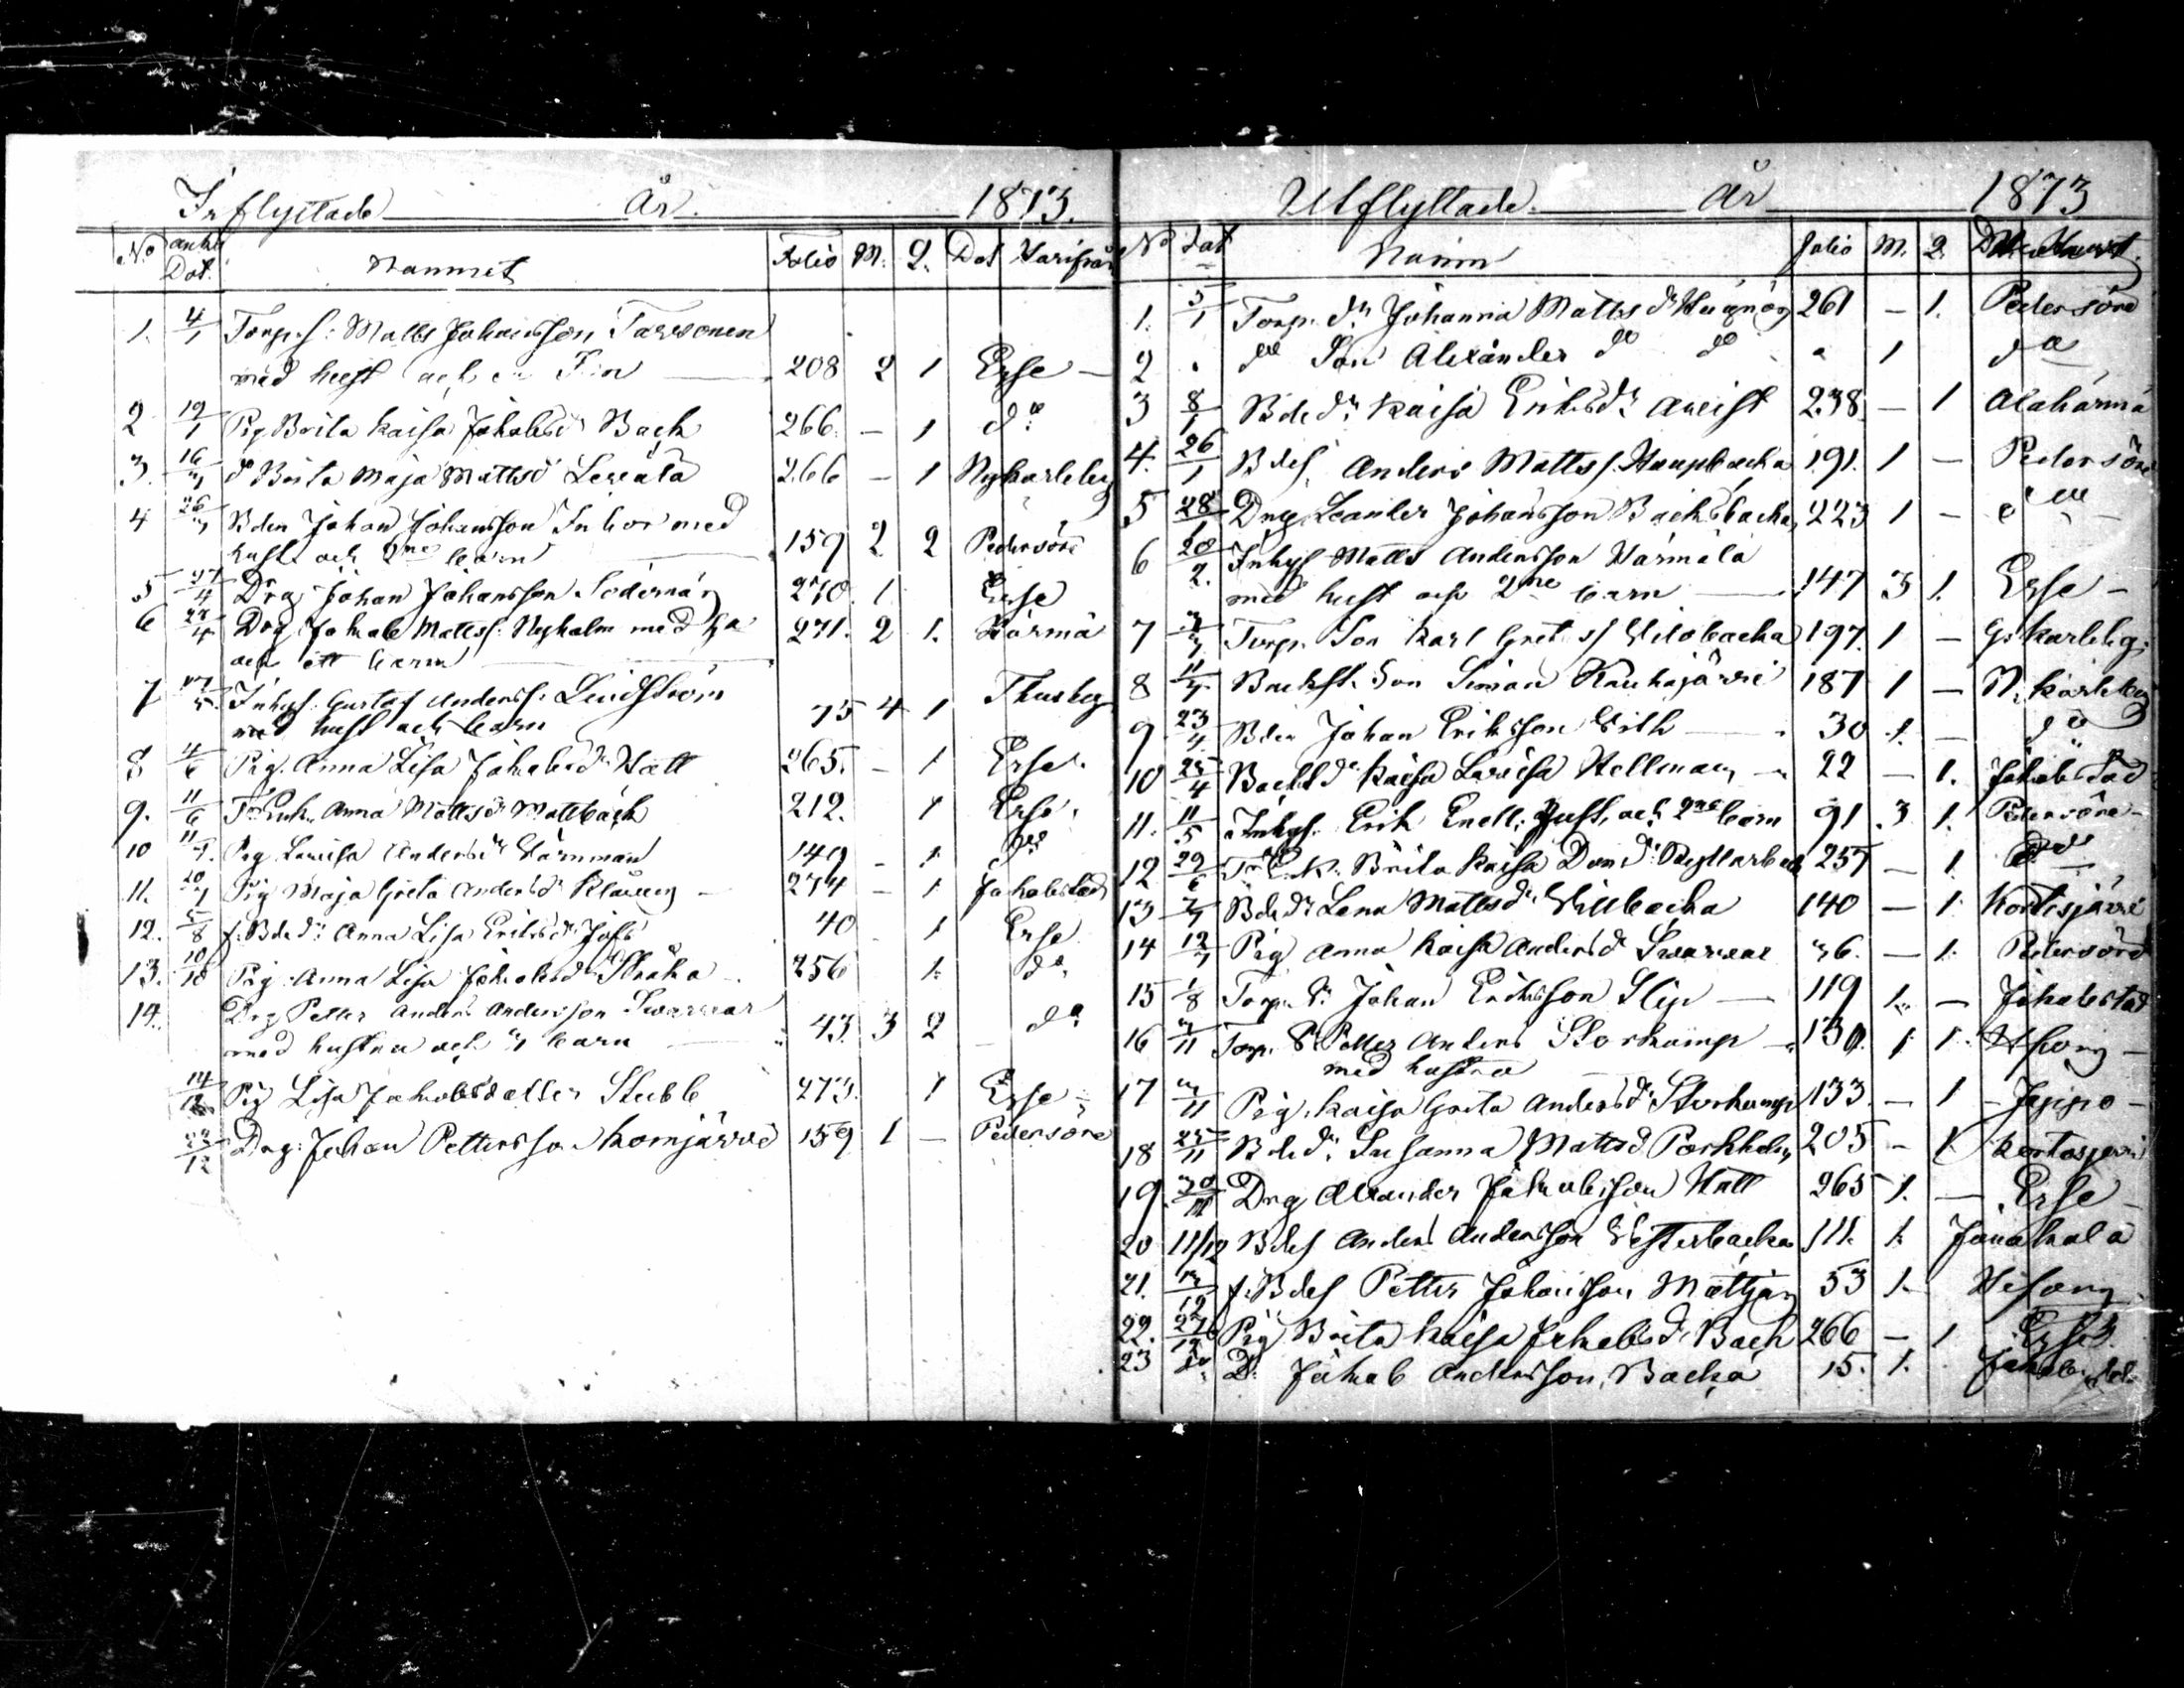 Inflyttade År. 1873.
No ankl. Dat. Namnet Folio M. Q. Dat Varifrån
1. 4/1 Torp.s: Matts Johansson Tarvonen
med hust och en Son 208 2 1 Esse
2 12/1 Pig Brita Kaisa Jakobsdr Back 266. — 1 do
3. 16/3 do Brita Maja Mattsdr 266 — 1 Nykarleby
4 26/3 Bden Johan Johansson med
hust. och 2ne barn 159 2 2 Pedersöre
5 27/4 Drg Johan Johansson Södernäs 270. 1 Esse
6 27/4 Drg Jakob Mattss: Nyholm med
och ett barn 271. 2 1. Härmä
7 Inhys. Gustaf Anderss. Lindström
med hust och barn 75 4 1 Thusby
8 4/6 Pig. Anna Lisa Jakobsdr Hatt 265. — 1 Esse.
9. 11/6 Anna Mattsdr Mattbäck 212. 1 Esse.
10 11/7. Pig Lovisa Andersdr Värnman 149 — 1 do
11. 20/7 Pig Maja Greta Andersdr 274 — 1 Jakobstad
12. 5/8 f. Bdedr: Anna Lisa Eriksdr 40 1 Esse
13. 10/10 Pig. Anna Lisa Jakobsdr 256 1. do
14. Drg Petter Anders Andersson Svarvar
med hustru och 3 barn 43. 3 2 do
14/12 Pig Lisa Jakobsdotter Stubb 273. 1 Esse
12 Drg: Johan Pettersson Komjärvi 159 1 — Pedersöre
Utflyttade. År 1873
No Dat Namn Folio M. Q.
1. 5/1 Torp. dr Johanna Mattsdr 261 — 1. Pedersöre
2 . do Son Alexander do do 1 do
3 8/1 Bdedr Kaisa Eriksdr 238 — 1 Alahärmä
4. 26/1 Bdes. Anders Mattss. 191. 1 — Pedersöre
5 28/1 Drg. Leander Johansson Backsbacka 223 1 —
6 20/2. Inhys Matts Andersson Härmälä
med hust och 2ne barn 147 3 1. Esse —
7 Torp. Son Karl 197. 1 — G. karleby.
8 Backst. Son Simon Kauhajärvi 187 1 — N. karleby
9 23/4 Bden Johan Eriksson 30 1. — do
10 25/4 Backstdr Kaisa Lovisa Hellman 22 — 1. Jakobstad
11. 11/5 Inhys. Erik Enell; Hust, och 2ne barn 91 3 1. Pedersöre —
12 29/6 Brita Kaisa 257 — 1. do
13 7/7 Bdedr Lena Mattsdr Willbacka 140 — 1. Kortesjärvi
14 12/7 Pig Anna Kaisa Andersdr Svarvar 36. — 1. Pedersöre
15 1/8 Torp. S. Johan Eriksson Slip — 119 1. — Jakobstad
16 3/11 Torp. S. Petter Anders Storkamp 130. 1 1. H.fors —
med hustru
17 3/11 Pig. Kaisa Greta Andersdr Storkamp 133. — 1 — Jeppo —
18 25/11 Bdedr. Susanna Mattsd 205 — 1 Kortesjärvi
19. 30/11 Drg Alexander Jakobsson Hatt 265 1. — Esse —
20 11/12 Bdes Anders Andersson Westerbacka 111. 1. Janakala
21. 12/12 f. Bdes Petter Johansson Mattjas 53 1. Hifors
22. 27/12 Pig Brita Kaisa Jakobsdr Back 266 — 1 Esse
23 do. Dr Jakob Andersson Backa 15. 1. Jakobstad.